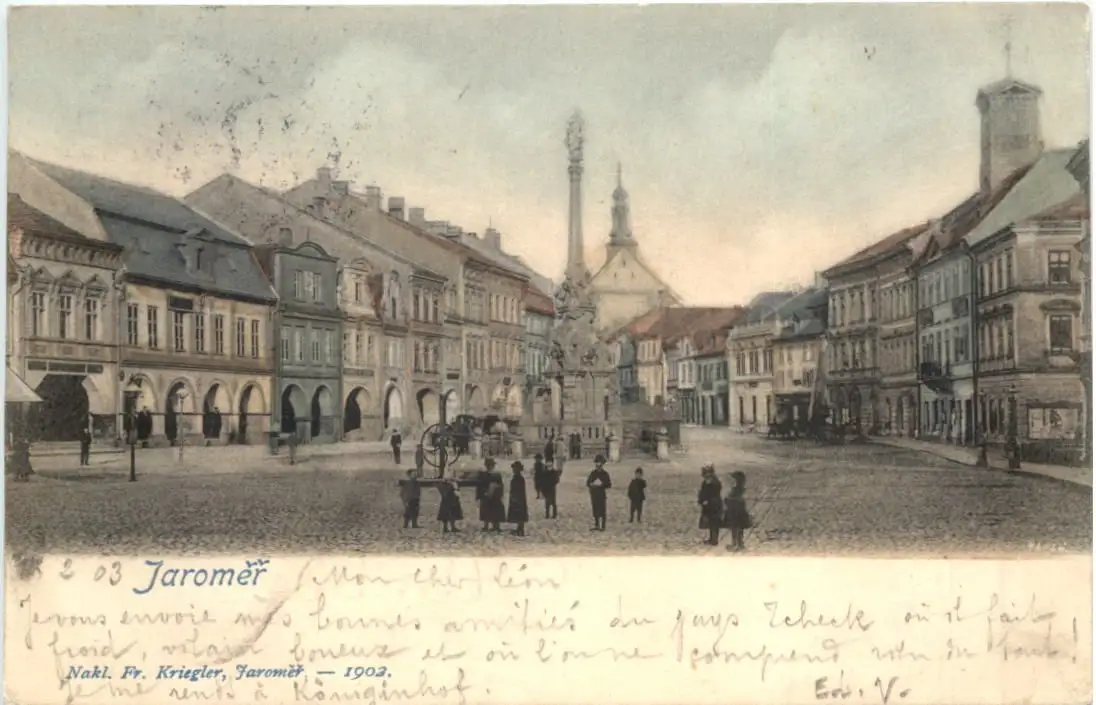 2 03 Jaroměř Mon cher Léon
Je vous envoie mes bonnes amitiés du pays Tcheck où il fait
froid, vilain boneux et où l'on ne comprend rien du tout!
Nakl. Fr. Kriegler, Jaroměř. — 1902.
Je me rends à Königinhof.
Ed. V.